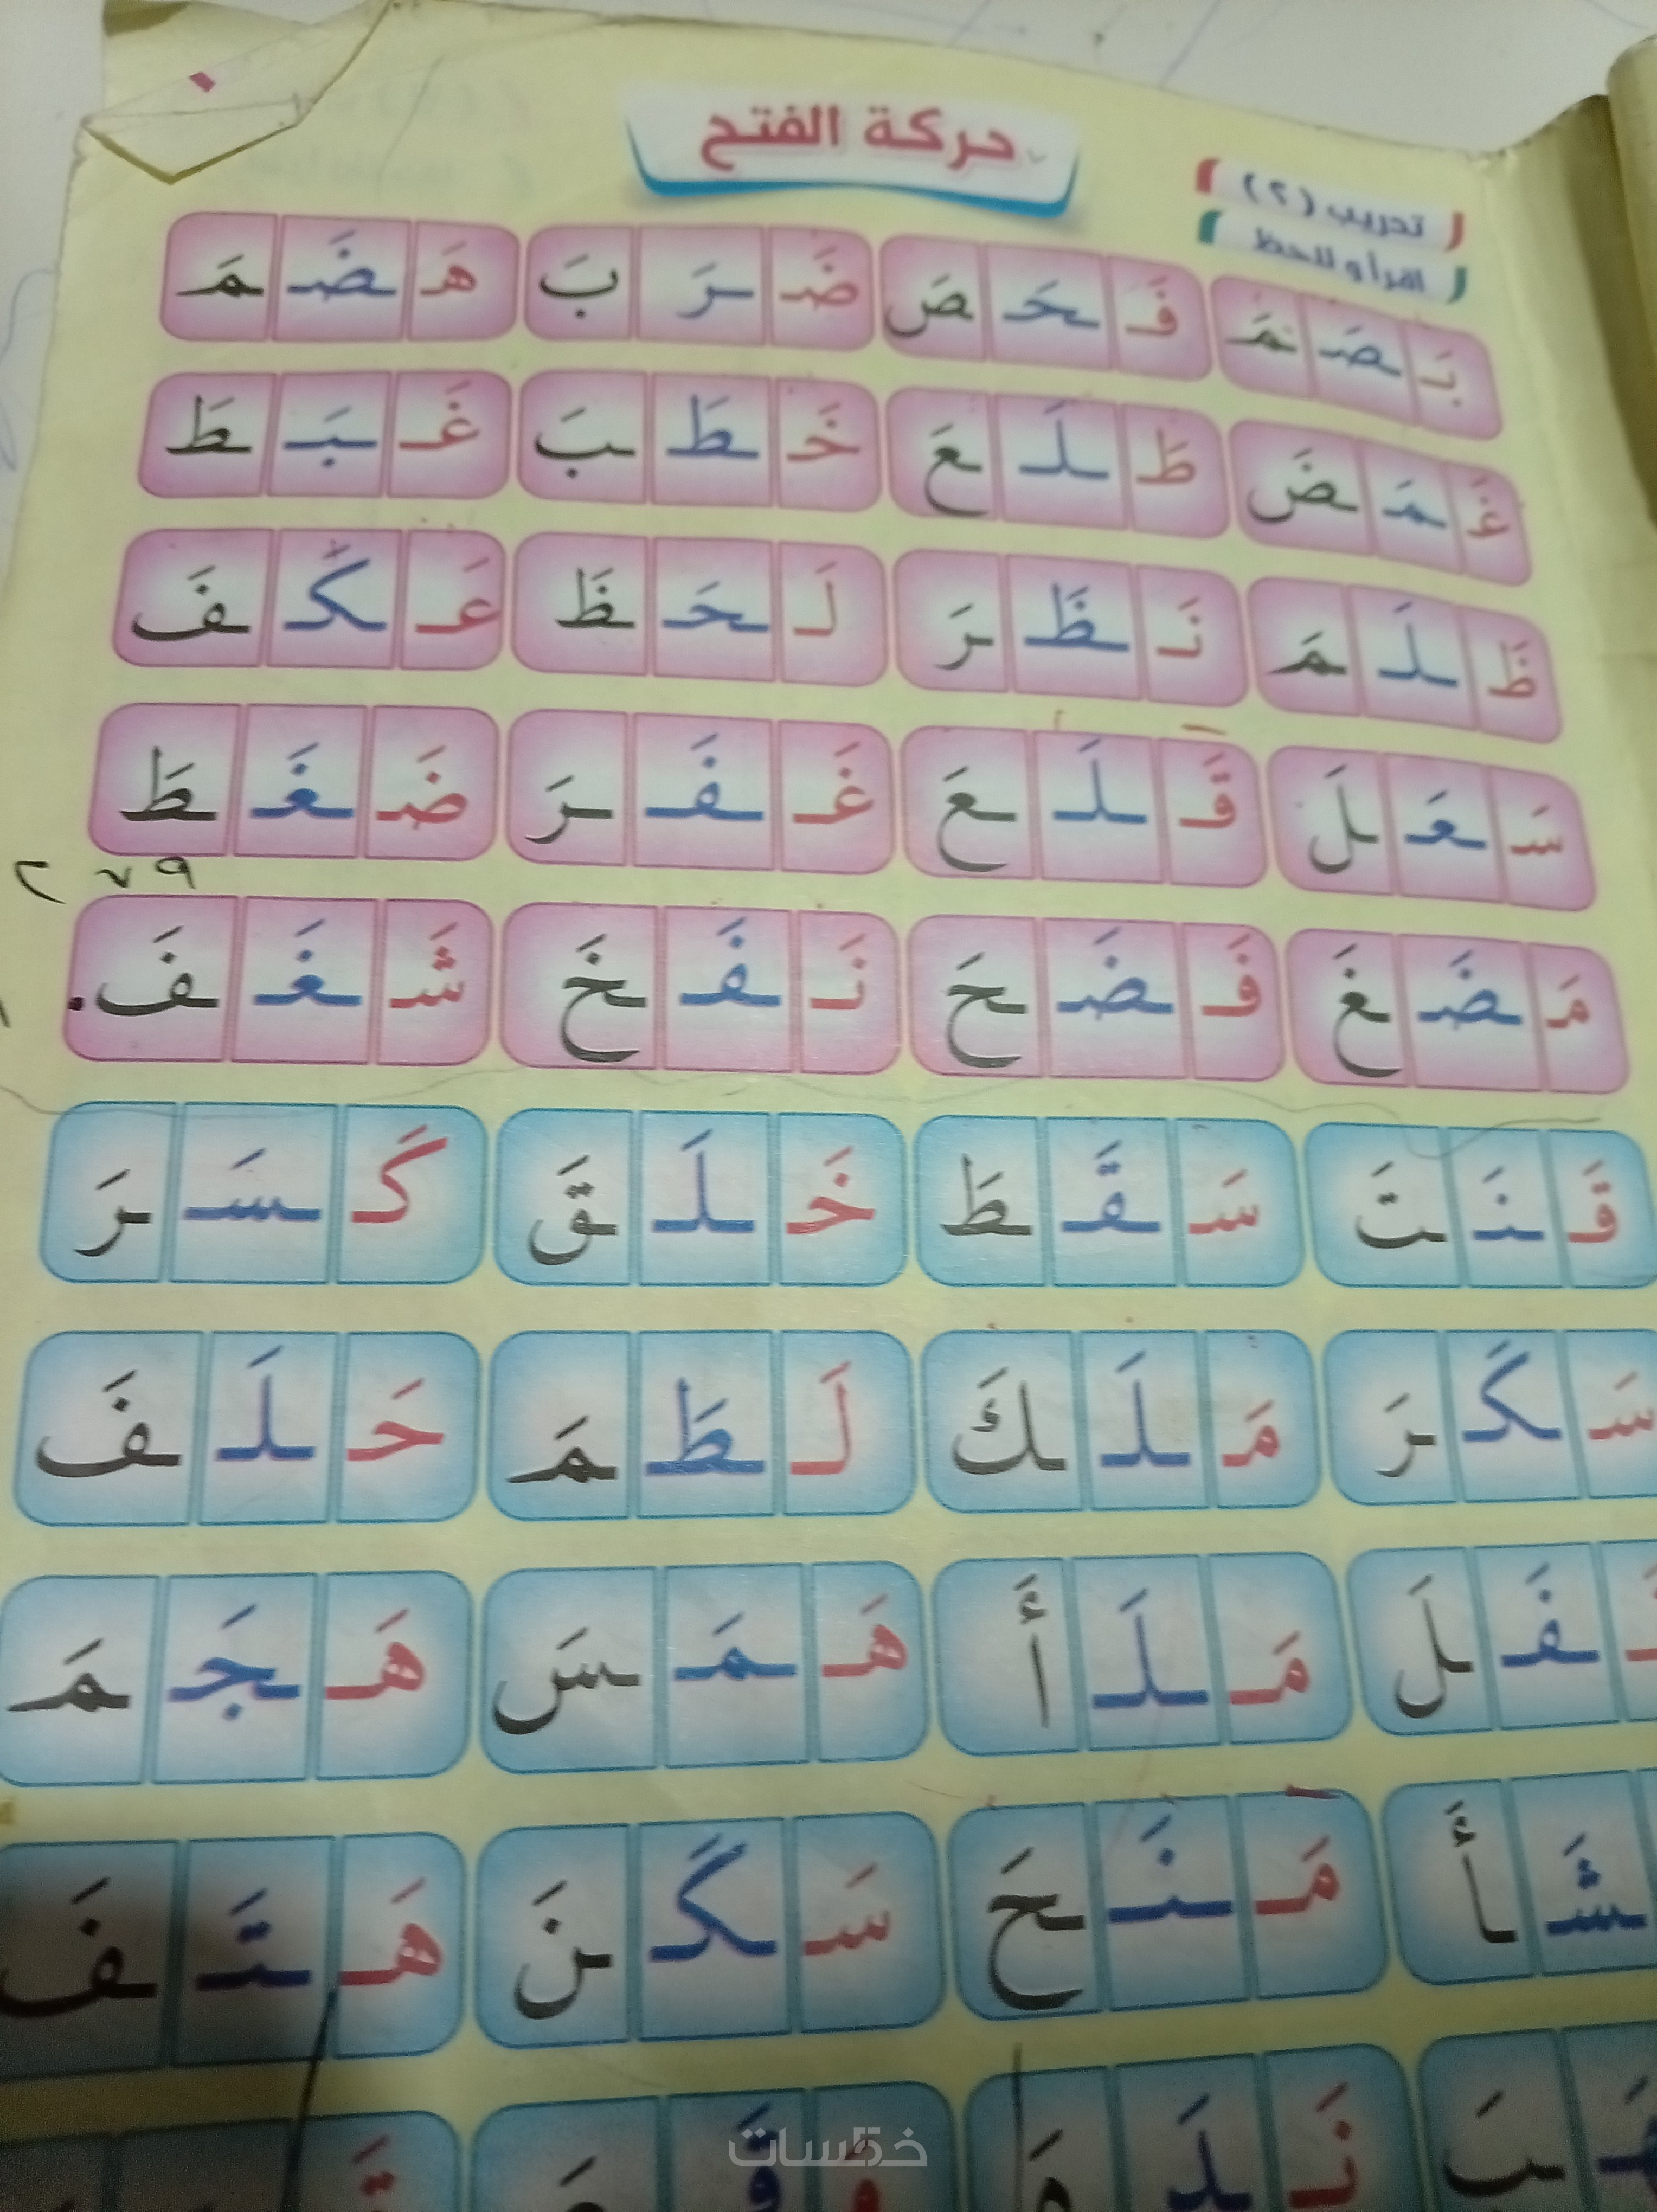 حركة الفتح
تدريب (٢)
اقرأ ولاحظ
بَـ ـصَـ ـمَ فَـ ـحَـ ـصَ ضَـ ـرَ بَ هَـ ـضَـ ـمَ
غَـ ـمَـ ـضَ طَـ ـلَـ ـعَ خَـ ـطَـ ـبَ غَـ ـبَـ ـطَ
ظَـ ـلَـ ـمَ نَـ ـظَـ ـرَ لَـ ـحَـ ـظَ عَـ ـكَـ ـفَ
سَـ ـعَـ ـلَ قَـ ـلَـ ـعَ غَـ ـفَـ ـرَ ضَـ ـغَـ ـطَ
مَـ ـضَـ ـغَ فَـ ـضَـ ـحَ نَـ ـفَـ ـخَ شَـ ـغَـ ـفَ
قَـ ـنَـ ـتَ سَـ ـقَـ ـطَ خَـ ـلَـ ـقَ كَـ ـسَـ ـرَ
سَـ ـكَـ ـرَ مَـ ـلَـ ـكَ لَـ ـطَـ ـمَ حَـ ـلَـ ـفَ
ـفَـ ـلَ مَـ ـلَـ أَ هَـ ـمَـ ـسَ هَـ ـجَـ ـمَ
ـشَـ ـأَ مَـ ـنَـ ـحَ سَـ ـكَـ ـنَ هَـ ـتَـ ـفَ
خمسات